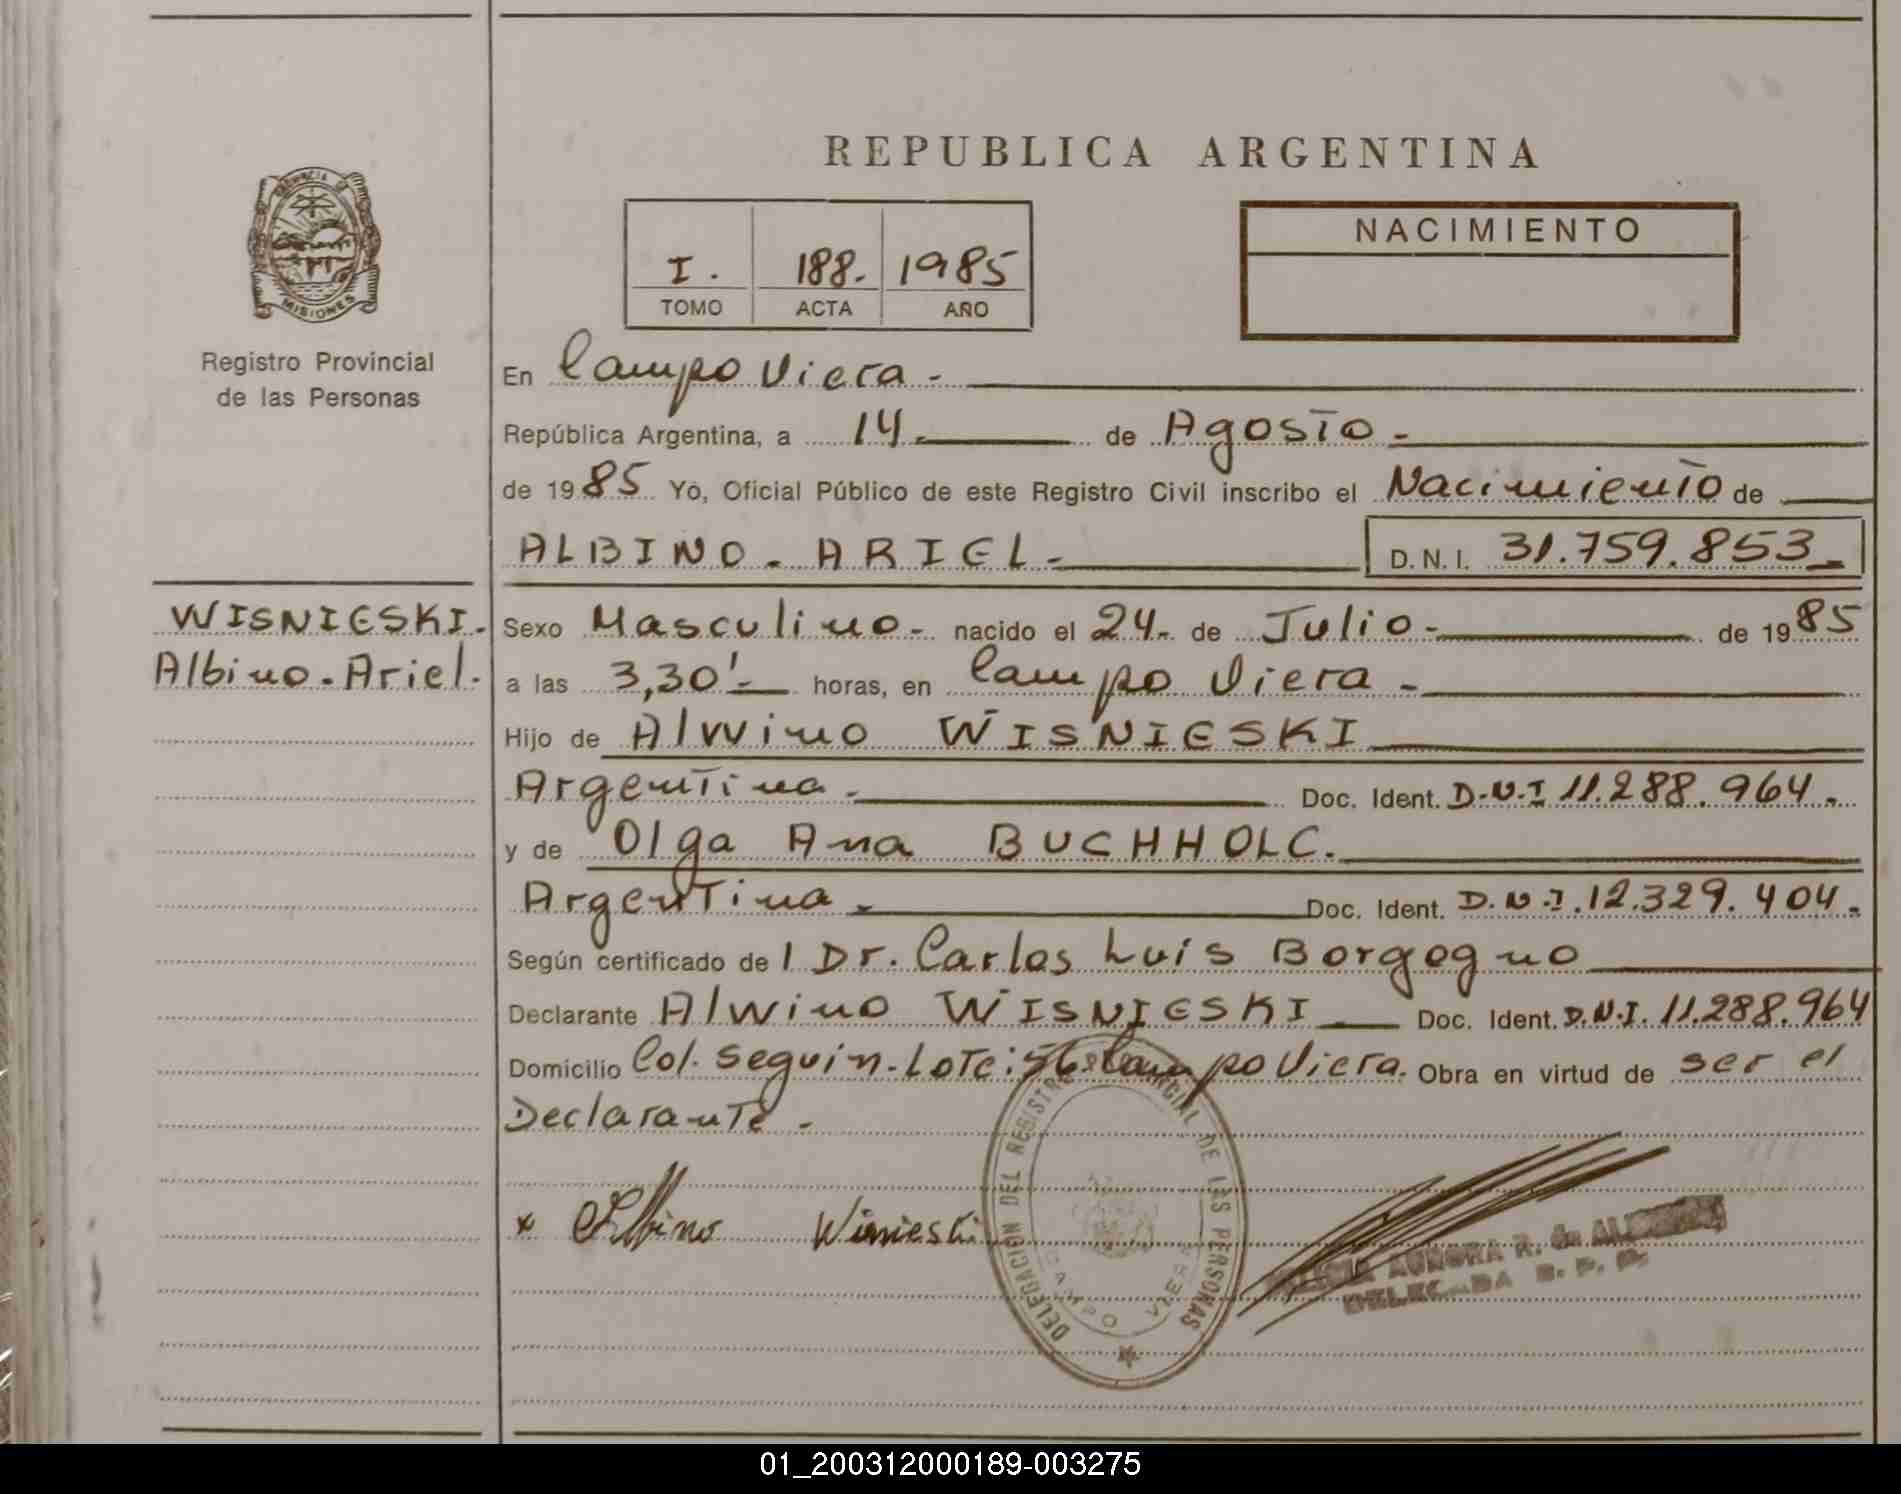 REPUBLICA ARGENTINA
PROVINCIA DE
MISIONES
Registro Provincial
de las Personas
I. 188. 1985
TOMO ACTA AÑO
NACIMIENTO
En Campo Viera -
República Argentina, a 14 - de Agosto -
de 1985 Yo, Oficial Público de este Registro Civil inscribo el Nacimiento de
ALBINO - ARIEL - D.N.I. 31.759.853 -
WISNIESKI.
Albino - Ariel.
Sexo Masculino - nacido el 24 - de Julio - de 1985
a las 3,30' - horas, en Campo Viera -
Hijo de Alwino WISNIESKI
Argentina - Doc. Ident. D.N.I 11.288.964.
y de Olga Ana BUCHHOLC.
Argentina - Doc. Ident. D.N.I. 12.329.404.
Según certificado de l Dr. Carlos Luis Borgogno
Declarante Alwino WISNIESKI Doc. Ident. D.N.I. 11.288.964
Domicilio Col. Seguin. Lote: 56 Campo Viera. Obra en virtud de ser el
Declarante -
x Albino Wisnieski
DELEGACION DEL REGISTRO PROVINCIAL DE LAS PERSONAS
CAMPO VIERA
AURORA R. de
DELEGADA R. P. P.
01_200312000189-003275